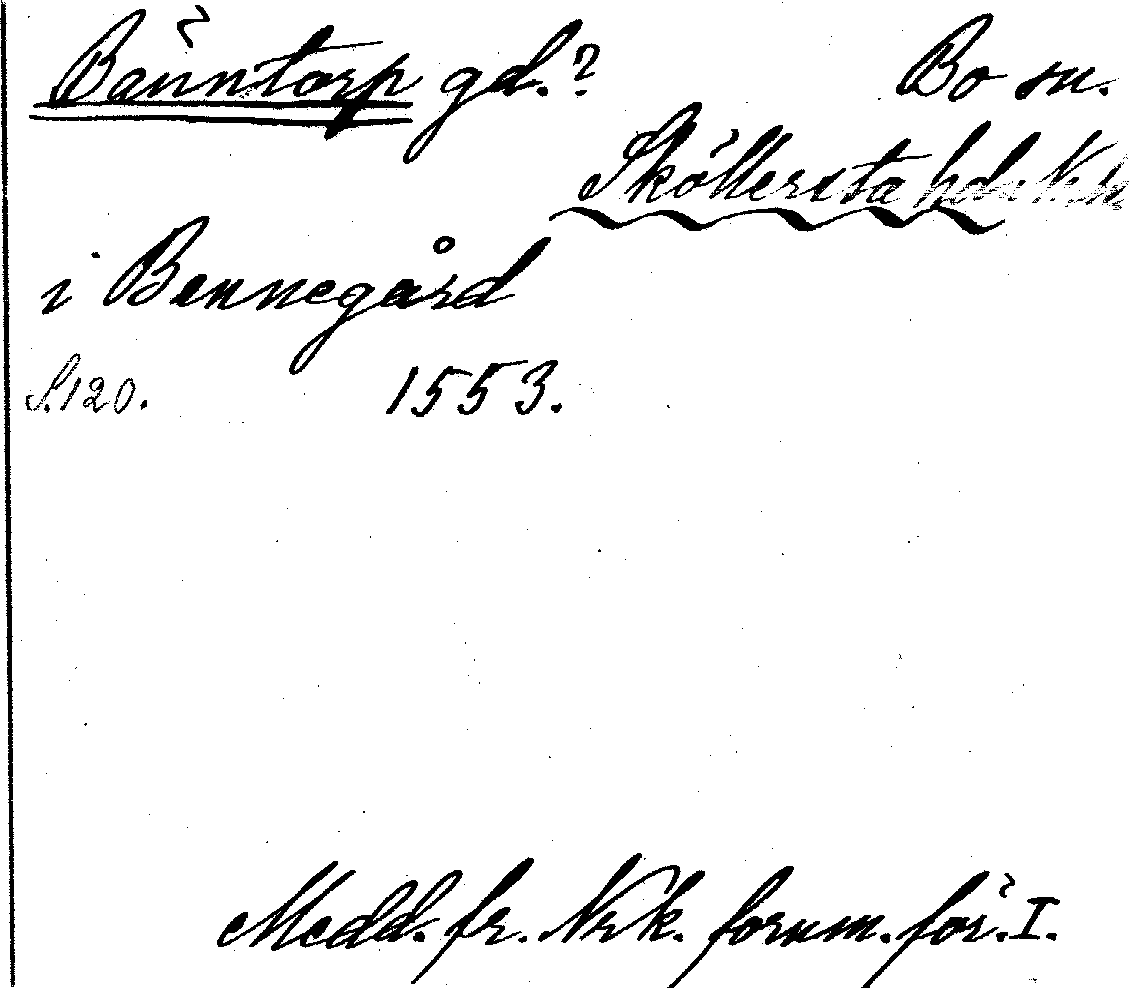 Bänntorp gd.? Bo sn.
Sköllersta hd. N.
i Bennegård
S.120. 1553.
Medd. fr. Nrk. fornm. för. I.